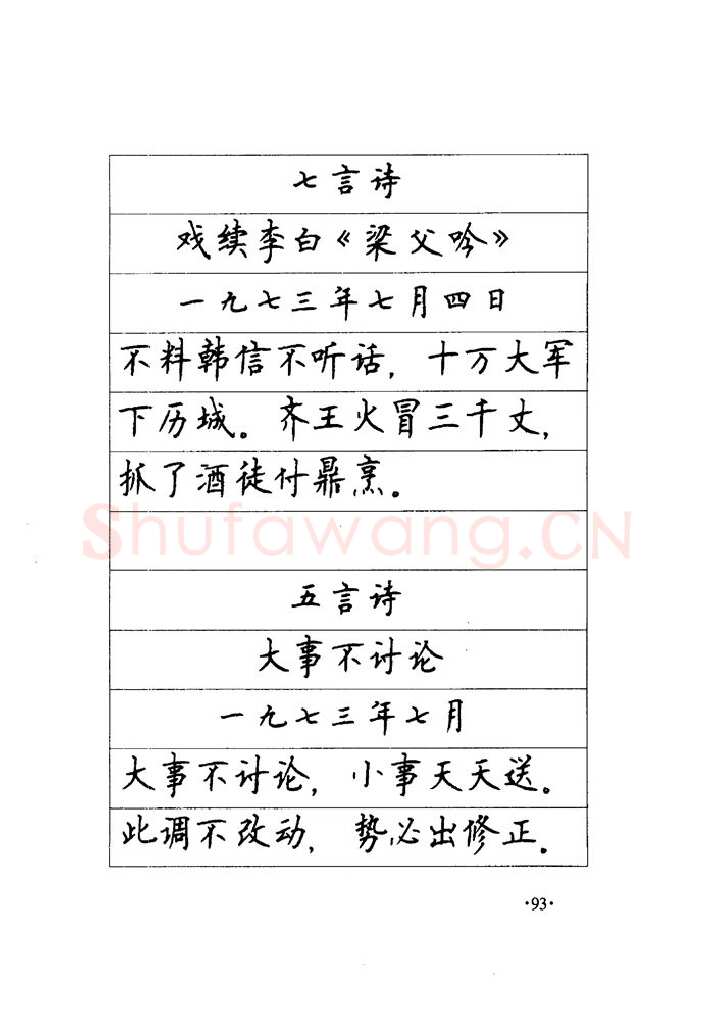 七言诗
戏续李白《梁父吟》
一九七三年七月四日
不料韩信不听话，十万大军
下历城。齐王火冒三千丈，
抓了酒徒付鼎烹。
Shufawang.CN
五言诗
大事不讨论
一九七三年七月
大事不讨论，小事天天送。
此调不改动，势必出修正。
·93·